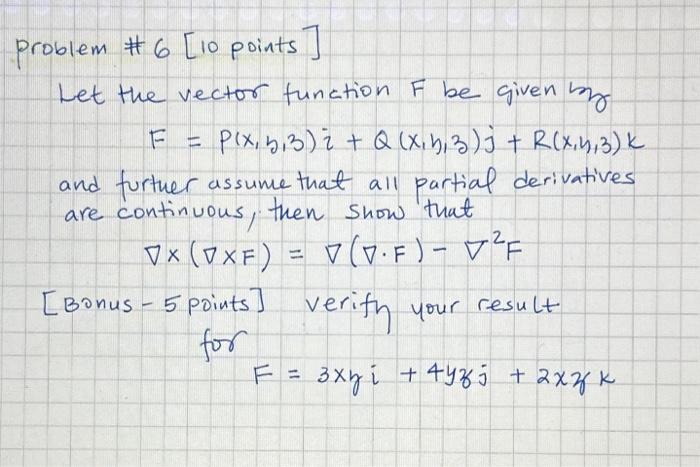 Problem # 6 [10 points]
Let the vector function F be given by
F = P(x,y,z)i + Q(x,y,z)j + R(x,y,z)k
and further assume that all partial derivatives
are continuous, then show that
∇×(∇×F) = ∇(∇·F) - ∇²F
[Bonus - 5 points] verify your result
for
F = 3xy i + 4yz j + 2xz k